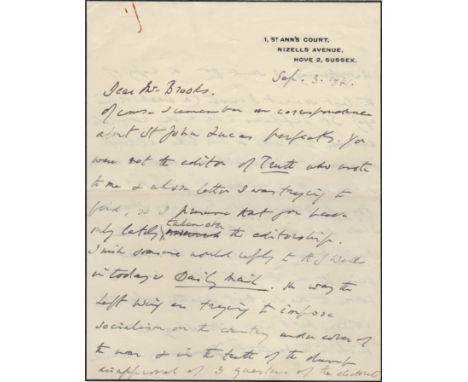 1, ST ANN'S COURT,
NIZELLS AVENUE,
HOVE 2, SUSSEX.
Sep. 3. 1941.
Dear Mr Brooks.
Of course I remember our correspondence
about St John Lucas perfectly. You
were not the editor of Truth who wrote
to me & whose letter I was trying to
find, so I presume that you have
only lately taken over the editorship.
I wish someone would reply to H G Wells
in today's Daily Mail. He says the
Left Wing are trying to impose
socialism on the country under cover of
the war & in the teeth of the
disapproval of 3 quarters of the electorate